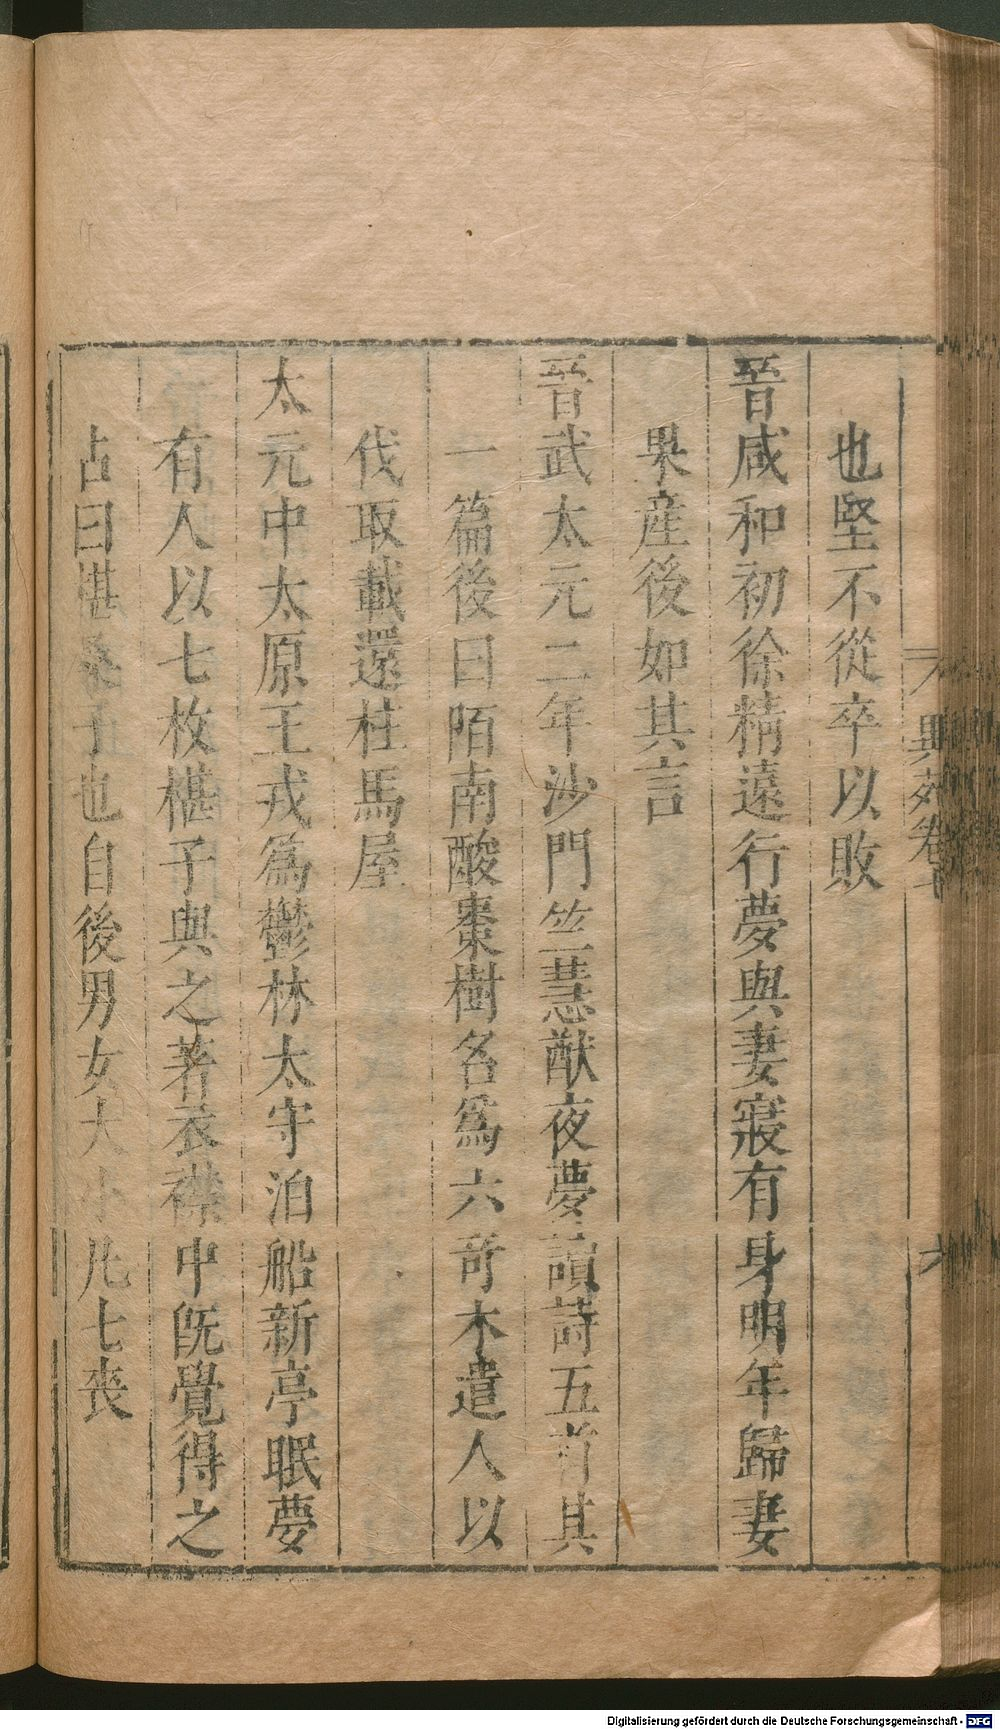 異苑卷七
六
也堅不從卒以敗
晉咸和初徐精遠行夢與妻寢有身明年歸妻
果産後如其言
晉武太元二年沙門竺慧猷夜夢讀詩五首其
一篇後曰陌南酸棗樹名爲六奇木遣人以
伐取載還柱馬屋
太元中太原王戎爲鬱林太守泊船新亭眠夢
有人以七枚椹子與之著衣襟中旣覺得之
占曰椹桑子也自後男女大小凡七喪
Digitalisierung gefördert durch die Deutsche Forschungsgemeinschaft - DFG